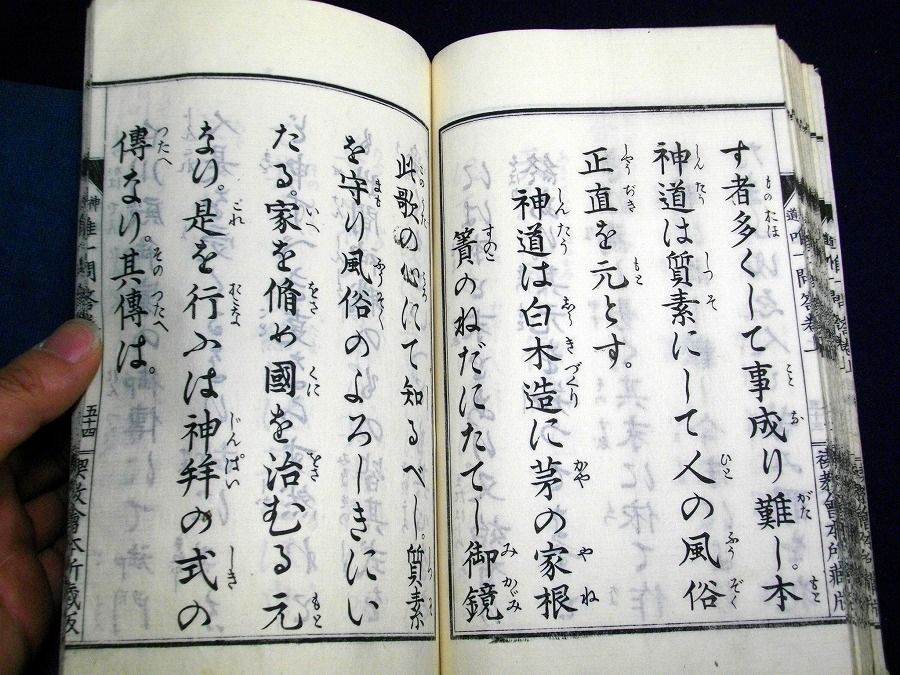 す者多くして事成り難し。本
神道は質素にして人の風俗
正直を元とす。
神道は白木造に茅の家根
簀のねだにたてし御鏡
此歌の心にて知るべし。質素
を守り風俗のよろしきにい
たる。家を脩め國を治むる元
なり。是を行ふは神拜の式の
傳なり。其傳は。
五十四